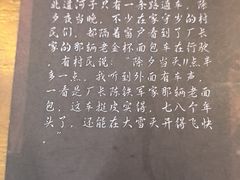 北道河子只有一条路通车，除
夕夜当晚，不少在家守岁的村
民们，都隔着窗户看到了厂长
家的那辆老金杯面包车在行驶
。有村民说：“除夕当天11点半
多一点，我听到外面有车声，
一看是厂长陈铁军家那辆老面
包，这车挺皮实得，七八个年
头了，还能在大雪天开得飞快
。”